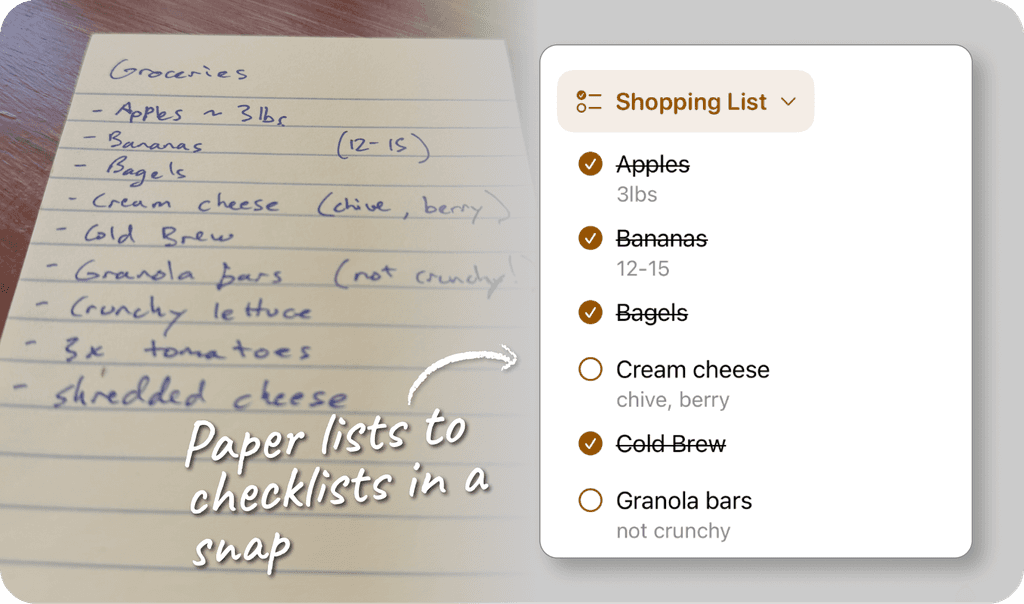 Groceries
- Apples ~ 3lbs
- Bananas (12-15)
- Bagels
- Cream cheese (chive, berry)
- Cold Brew
- Granola bars (not crunchy!
- Crunchy lettuce
- 3x tomatoes
- shredded cheese
Paper lists to
checklists in a
snap
Shopping List
Apples
3lbs
Bananas
12-15
Bagels
Cream cheese
chive, berry
Cold Brew
Granola bars
not crunchy